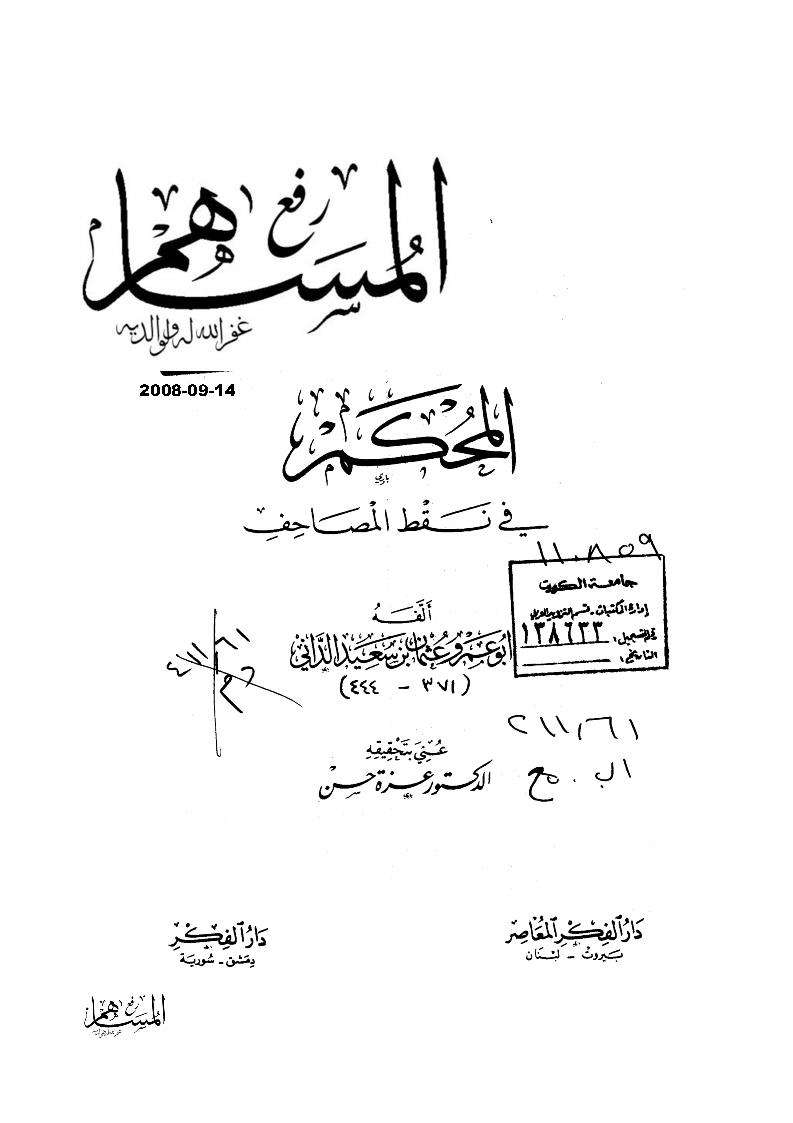 رفع
المساهم
غفر الله له ولوالديه
2008-09-14
المُحْكَم
في نَقْطِ المَصَاحِفِ
١١٠٨٥٩
جامعة الكويت
إدارة المكتبات - قسم التزويد العربي
رقم التسجيل: ١٣٨٦٣٣
التاريخ:
أَلَّفَهُ
أبو عمرو عثمان بن سعيد الداني
(٣٧١ - ٤٤٤)
٢١١,٦١
عُنِيَ بتَحْقِيقِهِ
الدكتور عزة حسن
دَارُ الفِكْرِ المُعَاصِر
بَيروت - لبْنان
دَارُ الفِكْرِ
دِمَشق - سُورية
رفع
المساهم